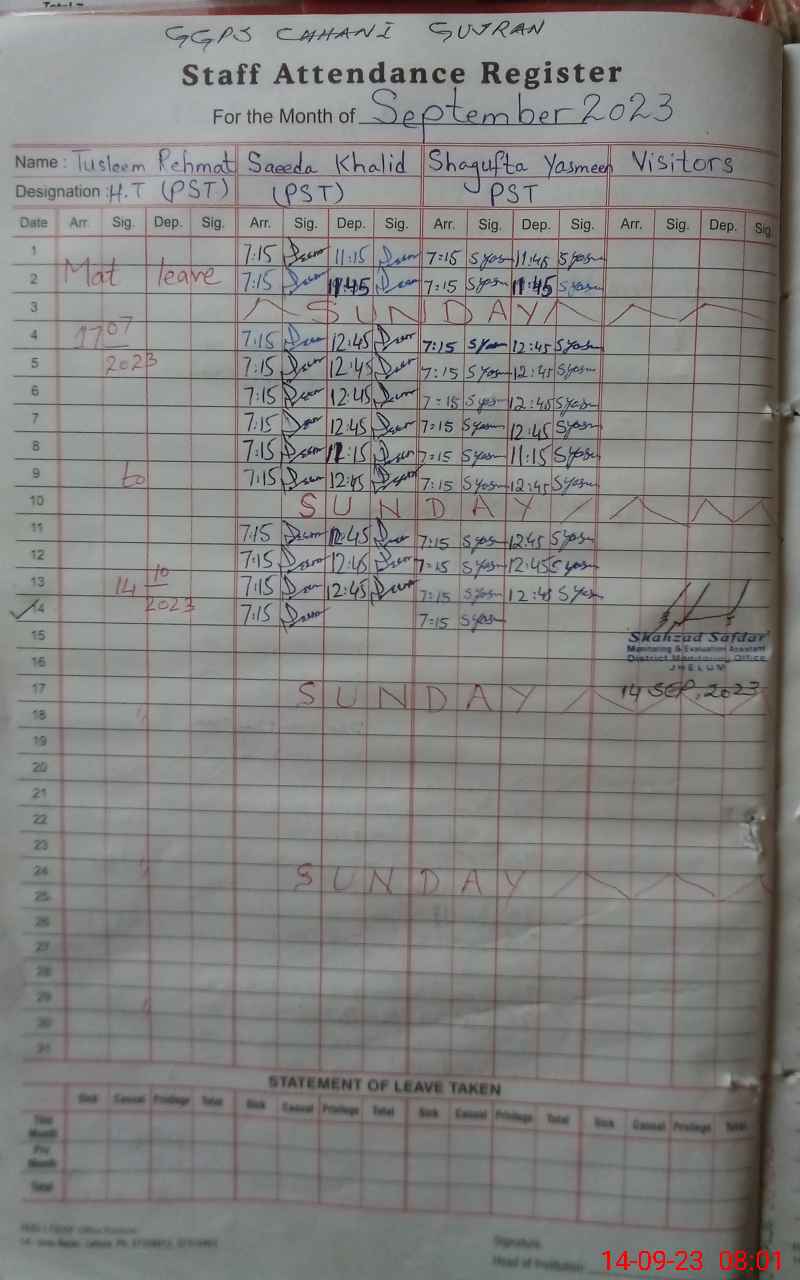 GGPS CAHANI GUJRAN
Staff Attendance Register
For the Month of September 2023
Name : Tusleem Rehmat Saeeda Khalid Shagufta Yasmeen Visitors
Designation : H.T (PST) (PST) PST
Date Arr. Sig. Dep. Sig. Arr. Sig. Dep. Sig. Arr. Sig. Dep. Sig. Arr. Sig. Dep. Sig
1 7:15 11:15 7:15 Syasm 11:45 Syasm
2 Mat leave 7:15 11:45 7:15 Syasm 11:45 Syasm
3 SUNDAY
4 17 07 7:15 12:45 7:15 Syasm 12:45 Syasm
5 2023 7:15 12:45 7:15 Syasm 12:45 Syasm
6 7:15 12:45 7:15 Syasm 12:45 Syasm
7 7:15 12:45 7:15 Syasm 12:45 Syasm
8 7:15 11:15 7:15 Syasm 11:15 Syasm
9 to 7:15 12:45 7:15 Syasm 12:45 Syasm
10 SUNDAY
11 7:15 12:45 7:15 Syasm 12:45 Syasm
12 7:15 12:45 7:15 Syasm 12:45 Syasm
13 14 10 7:15 12:45 7:15 Syasm 12:45 Syasm
14 2023 7:15 7:15 Syasm
15
Shahzad Safdar
Monitoring & Evaluation Assistant
District Monitoring Office
JHELUM
16
17 SUNDAY 14 SEP, 2023
18
19
20
21
22
23
24 SUNDAY
25
26
27
28
29
30
31
STATEMENT OF LEAVE TAKEN
Sick Casual Privilege Total Sick Casual Privilege Total Sick Casual Privilege Total Sick Casual Privilege Total
This Month
Pre Month
Total
Signature
Head of Institution
14-09-23 08:01